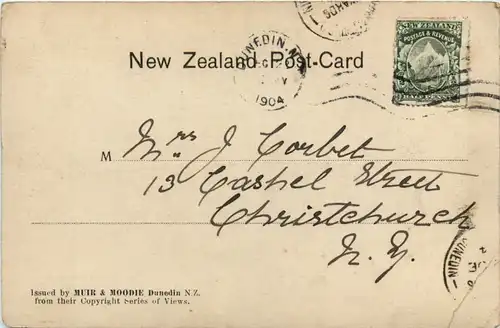 DUNEDIN N.Z.
1904
NEW ZEALAND
POSTAGE & REVENUE
HALF PENNY
New Zealand Post-Card
M Mrs J Corbet
13 Cashel Street
Christchurch
N. Z.
DUNEDIN
Issued by MUIR & MOODIE Dunedin N.Z.
from their Copyright Series of Views.